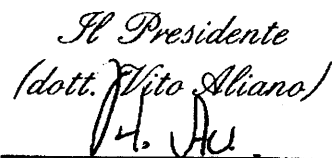 Il Presidente
(dott. Vito Aliano)